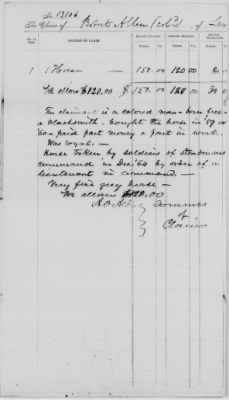 No 13106
The Claim of Robert Allen (Col'd) of
NATURE OF CLAIM.
1 1 Horse — 150.00 120.00
We allow $120.00 $ 150.00 120.00 30
The claimant is a colored man - born free -
a blacksmith. bought the horse in '59 or
'60 - paid part money & part in work.
Was loyal. —
Horse taken by soldiers of
command in Dec '64 by order of a
lieutenant in command. —
Very fine grey horse —
We allow $120.00
Commrs
of
Claims